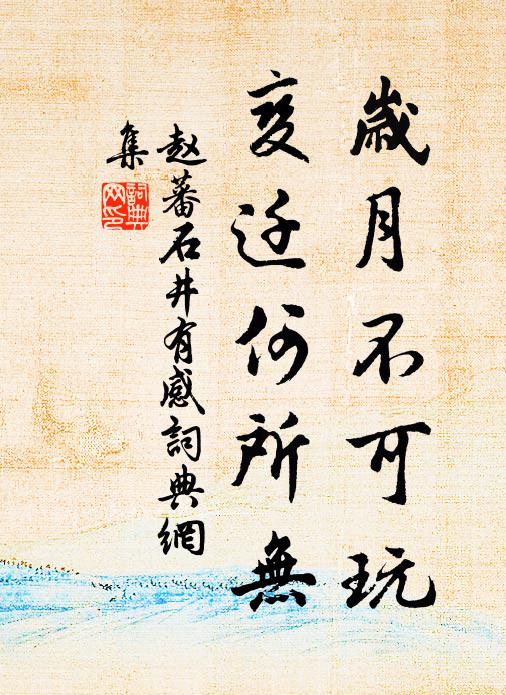 歲月不可玩
变迁何所無
赵蕃石井有感詞典網
集
詞典网印